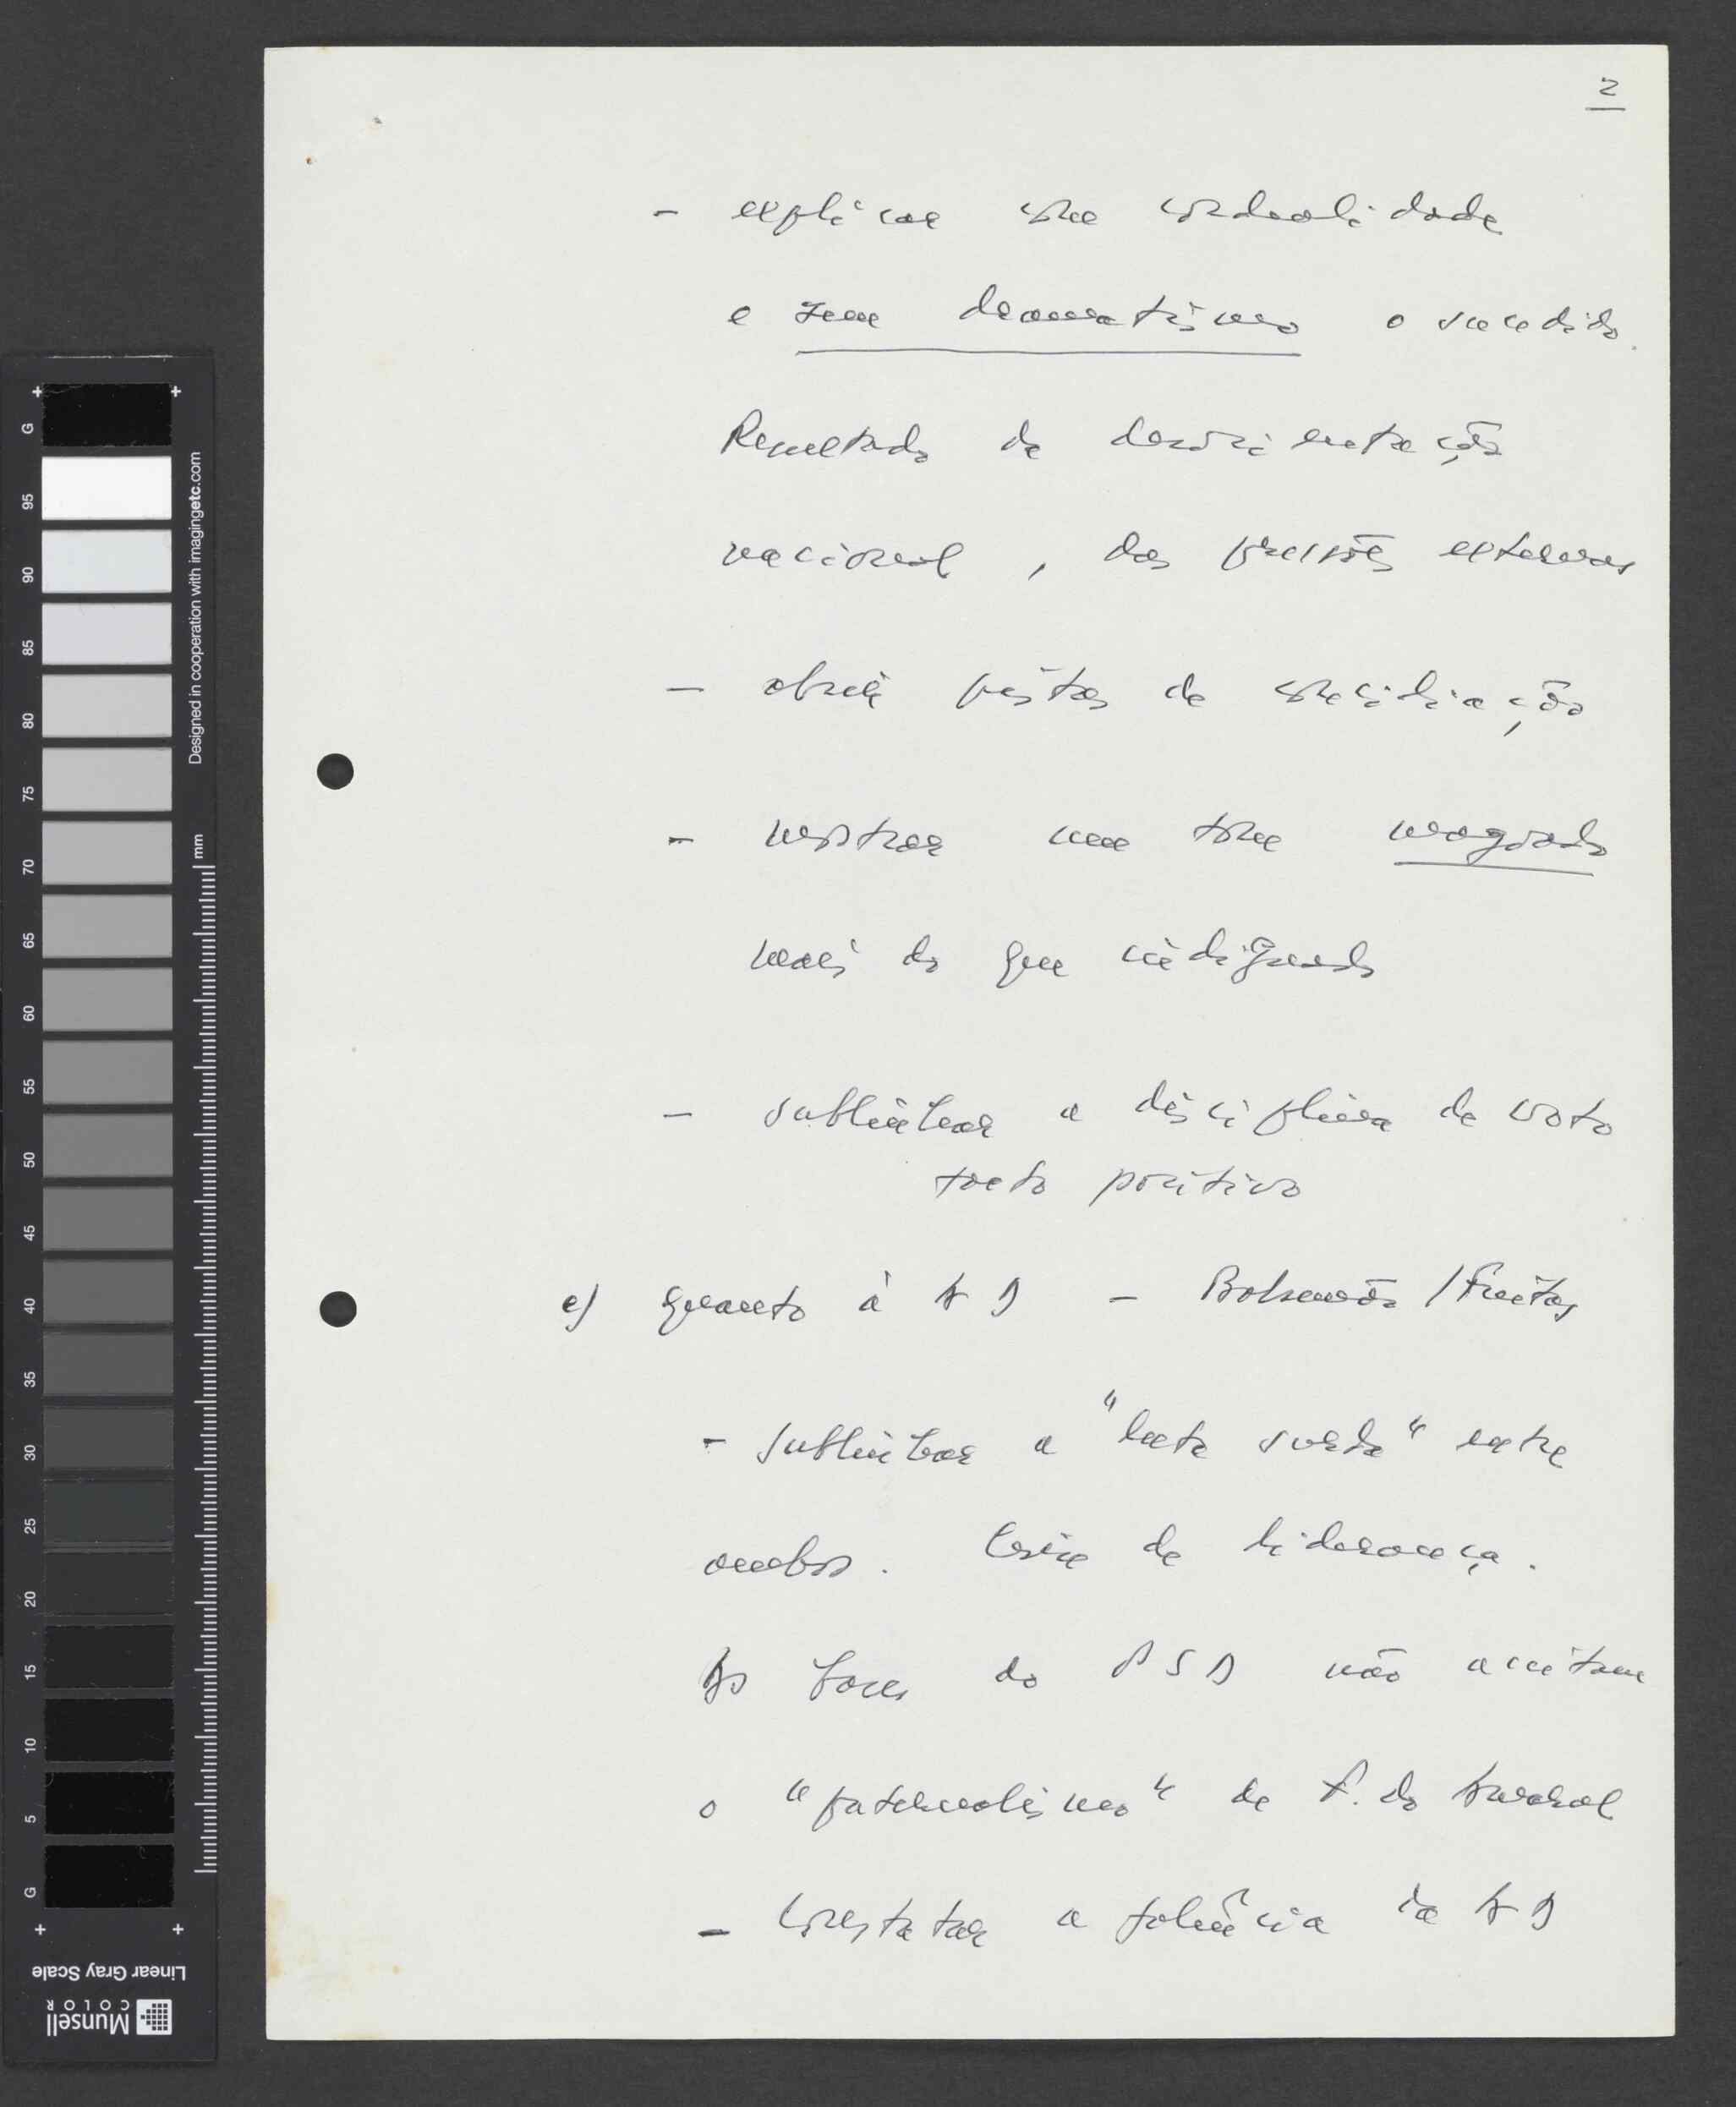 2
- explicar com cordealidade
e sem dramatismo o sucedido.
Resultado da desorientação
nacional, das pressões externas
- abrir pistas de conciliação
- mostrar um tom magoado
mais do que indignado
- sublinhar a disciplina de voto
tacto positivo
e) quanto à AD - Balsemão / Freitas
- sublinhar a "luta surda" entre
ambos. Crise de liderança.
As bases do PSD não aceitam
o "paternalismo" de F. do Amaral
- constatar a falência da AD
G
95
90
85
80
75
70
65
60
55
50
45
40
35
30
25
20
15
10
5
G
Designed in cooperation with imagingetc.com
mm
Linear Gray Scale
Munsell
COLOR